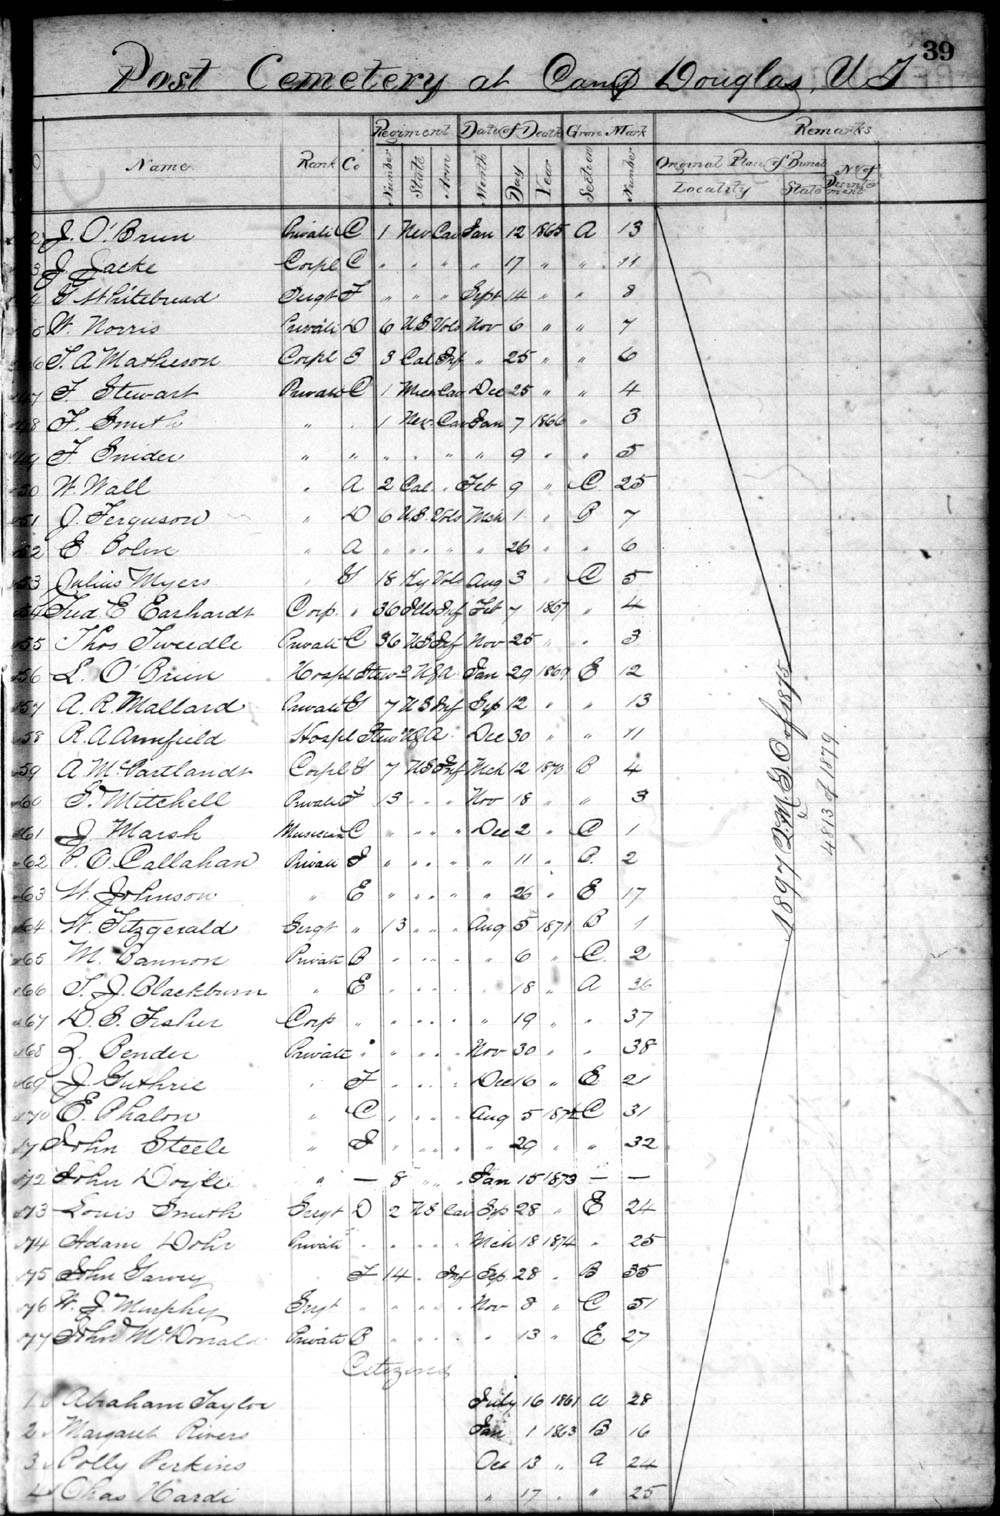 39
Post Cemetery at Camp Douglas, U T
Regiment Date of Death Grave Mark Remarks
Name Rank Co Number State Arm Month Day Year Section Number Original Place of Burial No of
Locality State
J. O'Brien Private C 1 Nev Cav Jan 12 1865 A 13
J Jacke Corpl C " " " " 17 " " 11
G Whitebread Sergt F " " " Sept 14 " " 8
W. Norris Private D 6 US Vols Nov 6 " " 7
T. A Matheson Corpl G 3 Cal Inf " 25 " " 6
F. Stewart Private C 1 Mich Cav Dec 25 " " 4
F. Smith " " 1 Nev Cav Jan 7 1866 " 3
F. Snider " " " " " " 9 " " 5
W. Wall " A 2 Cal " Feb 9 " C 25
J. Ferguson " D 6 US Vols Mch 1 " B 7
E. Bolin " A " " " " 26 " " 6
53 Julius Myers " G 18 Ky Vols Aug 3 " C 5
54 Fred E Earhardt Corp " 36 Ills Inf Feb 7 1867 " 4
55 Thos Tweedle Private C 36 US Inf Nov 25 " " 3
56 L. O'Brien Hospl Stew USA Jan 29 1869 E 12
57 A. R. Mallard Private G 7 US Inf Sep 12 " " 13
58 R. A. Armfield Hospl Stew USA Dec 30 " " 11
59 A McPartlandt Corpl G 7 US Inf Mch 12 1870 B 4
60 S. Mitchell Private F 13 " " Nov 18 " " 3
61 J Marsh Musician C " " " Dec 2 " C 1
62 P. O. Callahan Private I " " " " 11 " B. 2
63 W. Johnson " E " " " " 26 " E 17
64 W. Fitzgerald Sergt " 13 " " Aug 5 1871 B 1
65 M. Bannon Private B " " " " 6 " C. 2
66 T. J. Blackburn " E " " " " 18 " A 36
67 D. S. Fisher Corp " " " " " 19 " " 37
68 Z. Bender Private " " " " Nov 30 " " 38
69 J. Guthrie " F " " " Dec 16 " E 21
70 E. Phalon " C " " " Aug 5 1872 C 31
71 John Steele " I " " " " 29 " " 32
72 John Doyle " — 8 " " Jan 15 1873 — —
73 Louis Smith Sergt D 2 US Cav Sep 28 " E 24
74 Adam Dohr Private " " " " Mch 18 1874 " 25
75 John Garvey " F 14 " Inf Sep 28 " B 35
76 W. J. Murphy Sergt " " " " Nov 8 " C 51
77 John McDonald Private B " " " " 13 " E 27
Citizens
1 Abraham Taylor July 16 1861 A 28
2 Margaret Rivers Jan 1 1863 B 16
3 Polly Perkins Oct 13 " A 24
4 Chas Hardi " 17 " " 25
1897 Q.M.G.O of 1875
4813 of 1879